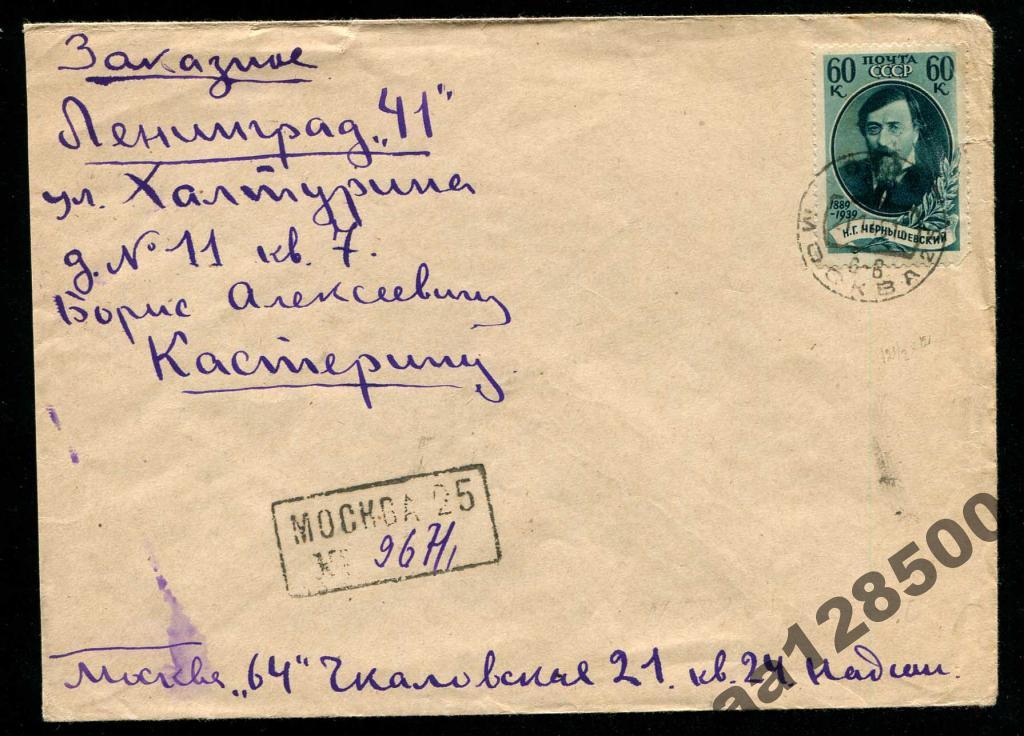 Заказное
Ленинград „41"
ул. Халтурина
д. № 11 кв. 7.
Борис Алексеевичу
Кастерину
60 К. ПОЧТА СССР 60 К.
1889
-1939
Н.Г. ЧЕРНЫШЕВСКИЙ
МОСКВА
МОСКВА 25
№ 967/1
Москва „64" Чкаловская 21. кв. 24
aa128500